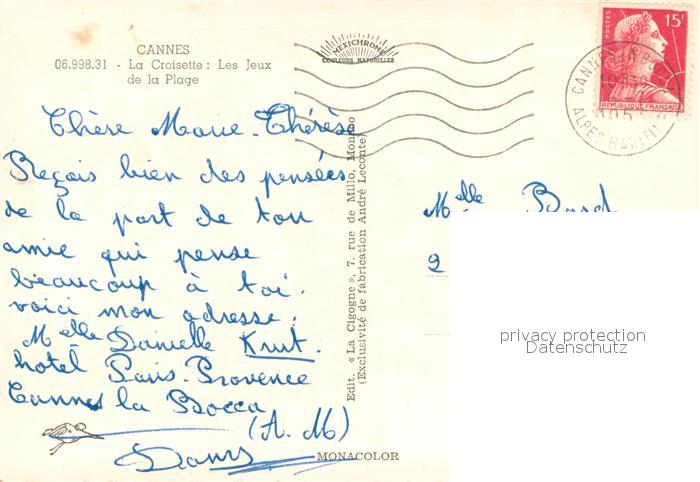 CANNES
06.998.31 - La Croisette : Les Jeux
de la Plage
MEXICHROME
COULEURS NATURELLES
POSTES
15F
REPUBLIQUE FRANÇAISE
CANNES
ALPES MARITIMES
Chère Marie-Thérèse
Reçois bien des pensées
de la part de ton
amie qui pense
beaucoup à toi.
voici mon adresse:
Melle Danielle Krut.
hotel Paris-Provence
Cannes la Bocca
(A.M)
Edit. « La Cigogne », 7, rue de Millo, Monaco
(Exclusivité de fabrication André Leconte)
MONACOLOR
Melle Bard
2
privacy protection
Datenschutz